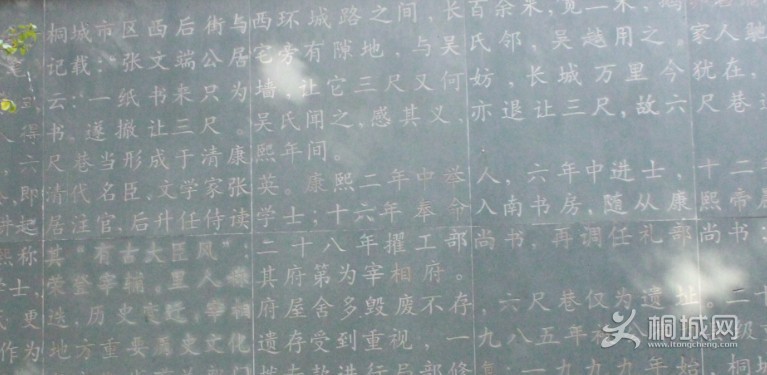 桐城市区西后街与西环城路之间，长百余米，宽一米，
记载：“张文端公居宅旁有隙地，与吴氏邻，吴越用之。家人驰
云：一纸书来只为墙，让它三尺又何妨，长城万里今犹在，
得书，遂撤让三尺。吴氏闻之，感其义，亦退让三尺，故六尺巷
六尺巷当形成于清康熙年间。
即清代名臣、文学家张英。康熙二年中举人，六年中进士，十二
起居注官，后升任侍读学士；十六年奉命入南书房，随从康熙帝
称其“有古大臣风”。二十八年擢工部尚书，再调任礼部尚书；
其府第为宰相府。
更迭，历史变迁，宰相府屋舍多毁废不存，六尺巷仅为遗址。二十
作为地方重要历史文化遗存受到重视，一九八五年
一九九九年始，桐城
桐城网
www.itongcheng.com